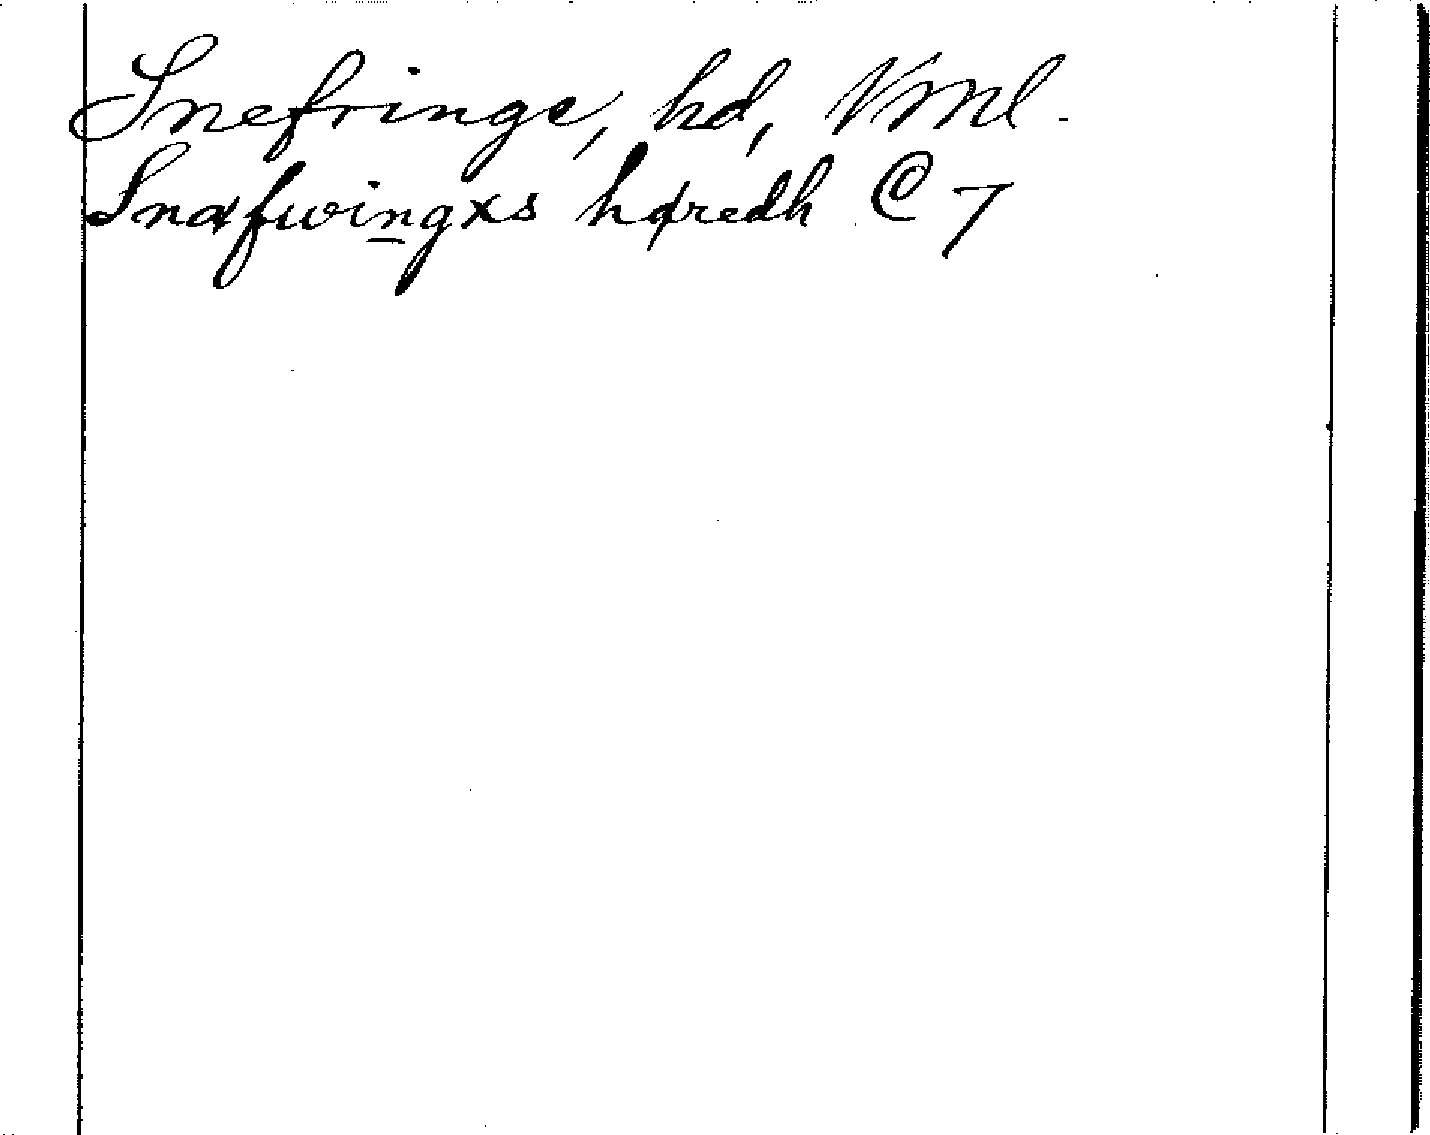 Snefringe, hd, Vml.
Snæfwingxs hdredh C 7